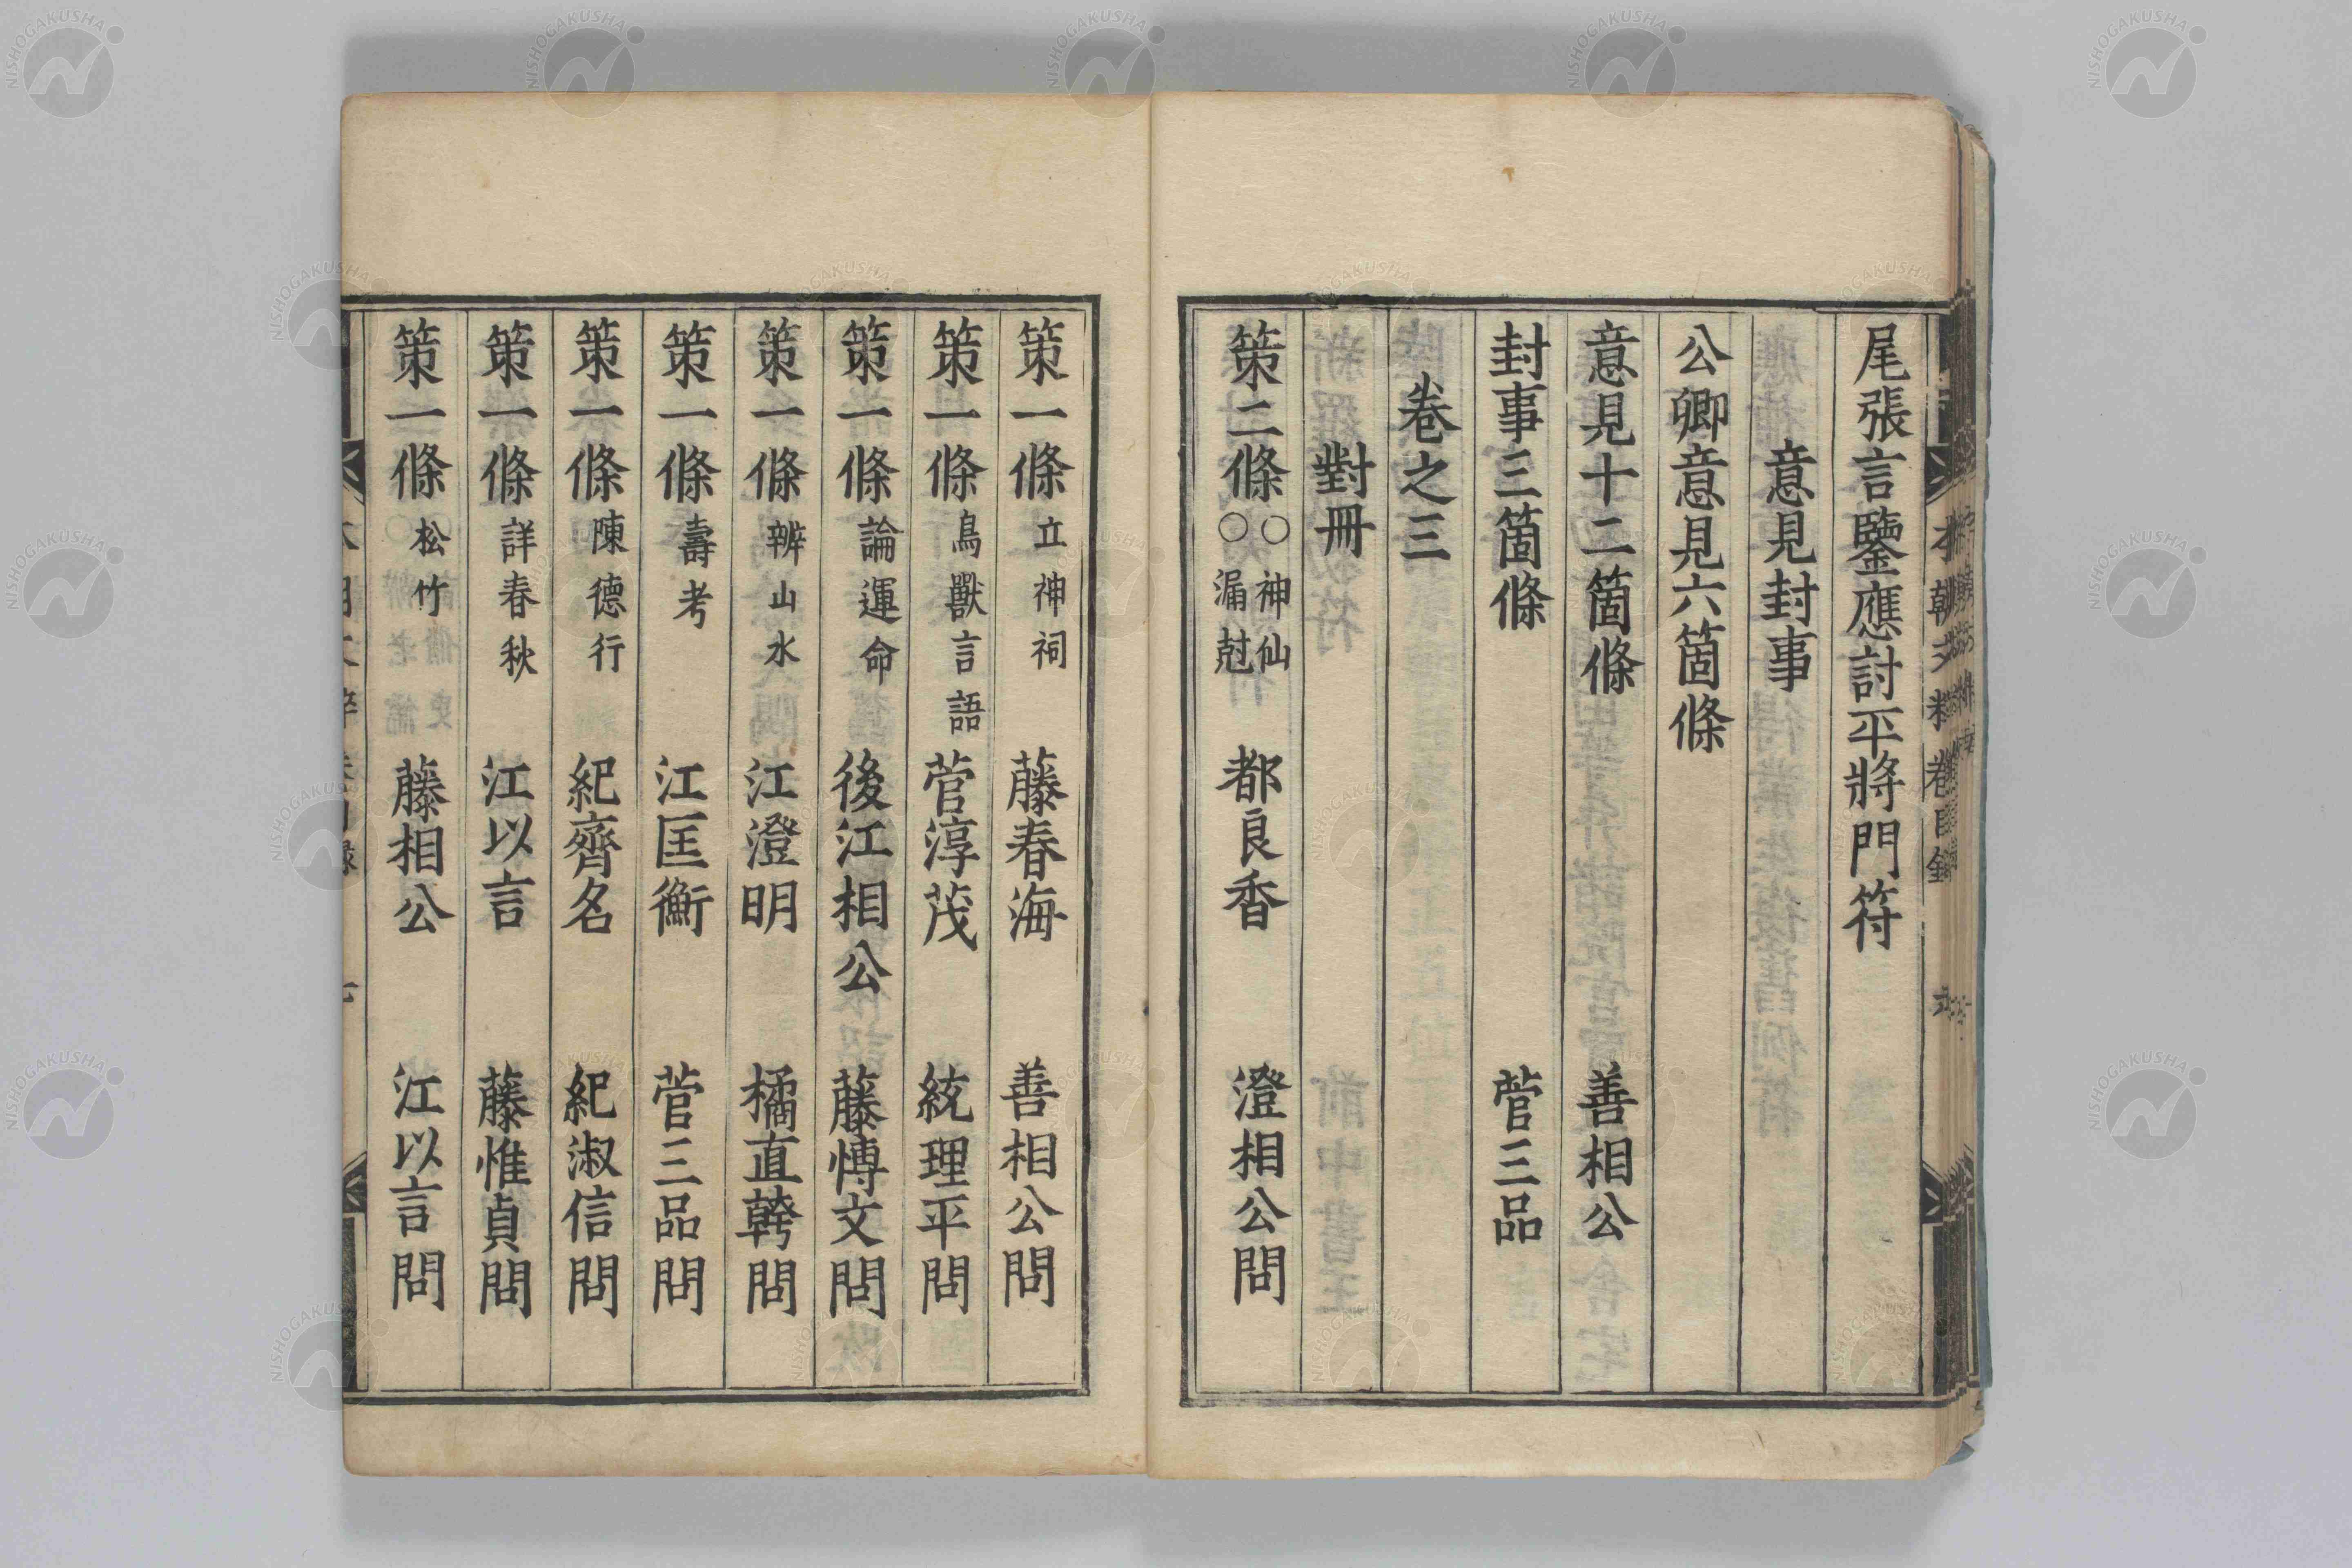 尾張言鑒應討平將門符
意見封事
公卿意見六箇條
意見十二箇條 善相公
封事三箇條 菅三品
卷之三
對冊
策二條 ○神仙 ○漏尅 都良香 澄相公問
策一條 立神祠 藤春海 善相公問
策一條 鳥獸言語 菅淳茂 統理平問
策一條 論運命 後江相公 藤博文問
策一條 辨山水 江澄明 橘直幹問
策一條 壽考 江匡衡 菅三品問
策一條 陳德行 紀齊名 紀淑信問
策一條 詳春秋 江以言 藤惟貞問
策一條 松竹 藤相公 江以言問
NISHOGAKUSHA